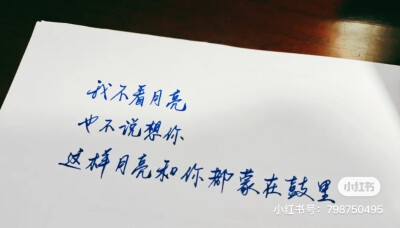 我不看月亮
也不说想你
这样月亮和你都蒙在鼓里
小红书
小红书号：798750495